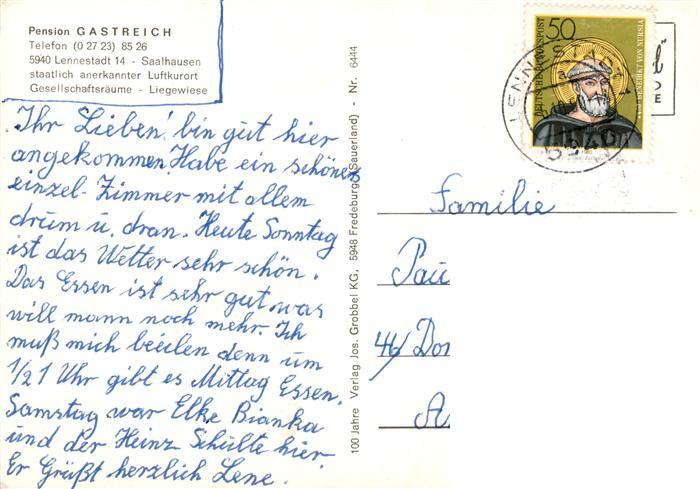 Pension GASTREICH
Telefon (0 27 23) 85 26
5940 Lennestadt 14 - Saalhausen
staatlich anerkannter Luftkurort
Gesellschaftsräume - Liegewiese
Ihr Lieben! bin gut hier
angekommen. Habe ein schönes
einzel-Zimmer mit allem
drum u. dran. Heute Sonntag
ist das Wetter sehr schön.
Das Essen ist sehr gut was
will mann noch mehr. Ich
muß mich beeilen denn um
1/2 1 Uhr gibt es Mittag Essen.
Samstag war Elke Bianka
und der Heinz Schulte hier.
Er Grüßt herzlich Lene.
100 Jahre Verlag Jos. Grobbel KG, 5948 Fredeburg (Sauerland) - Nr. 6444
50
DEUTSCHE BUNDESPOST
BENEDIKT VON NURSIA
LENNESTADT
5940
Familie
Pau
46 Dor
A